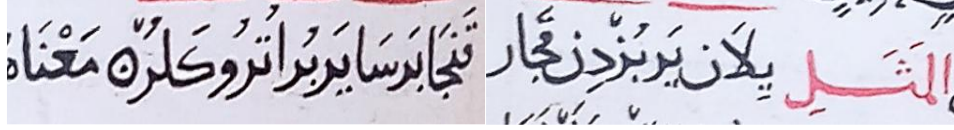 المَثَلِ يِلَان يَرْبُزْدِن قَجَار قَنجَا بَرسَا يَربُز اُترُو كَلُرْ مَعْنَاه